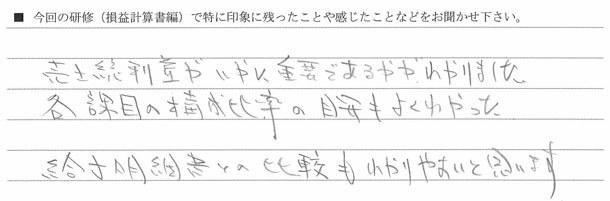 ■ 今回の研修（損益計算書編）で特に印象に残ったことや感じたことなどをお聞かせ下さい。
売上総利益がいかに重要であるかがわかりました
各課目の構成比率の目安もよくわかった
給与明細書との比較もわかりやすいと思います